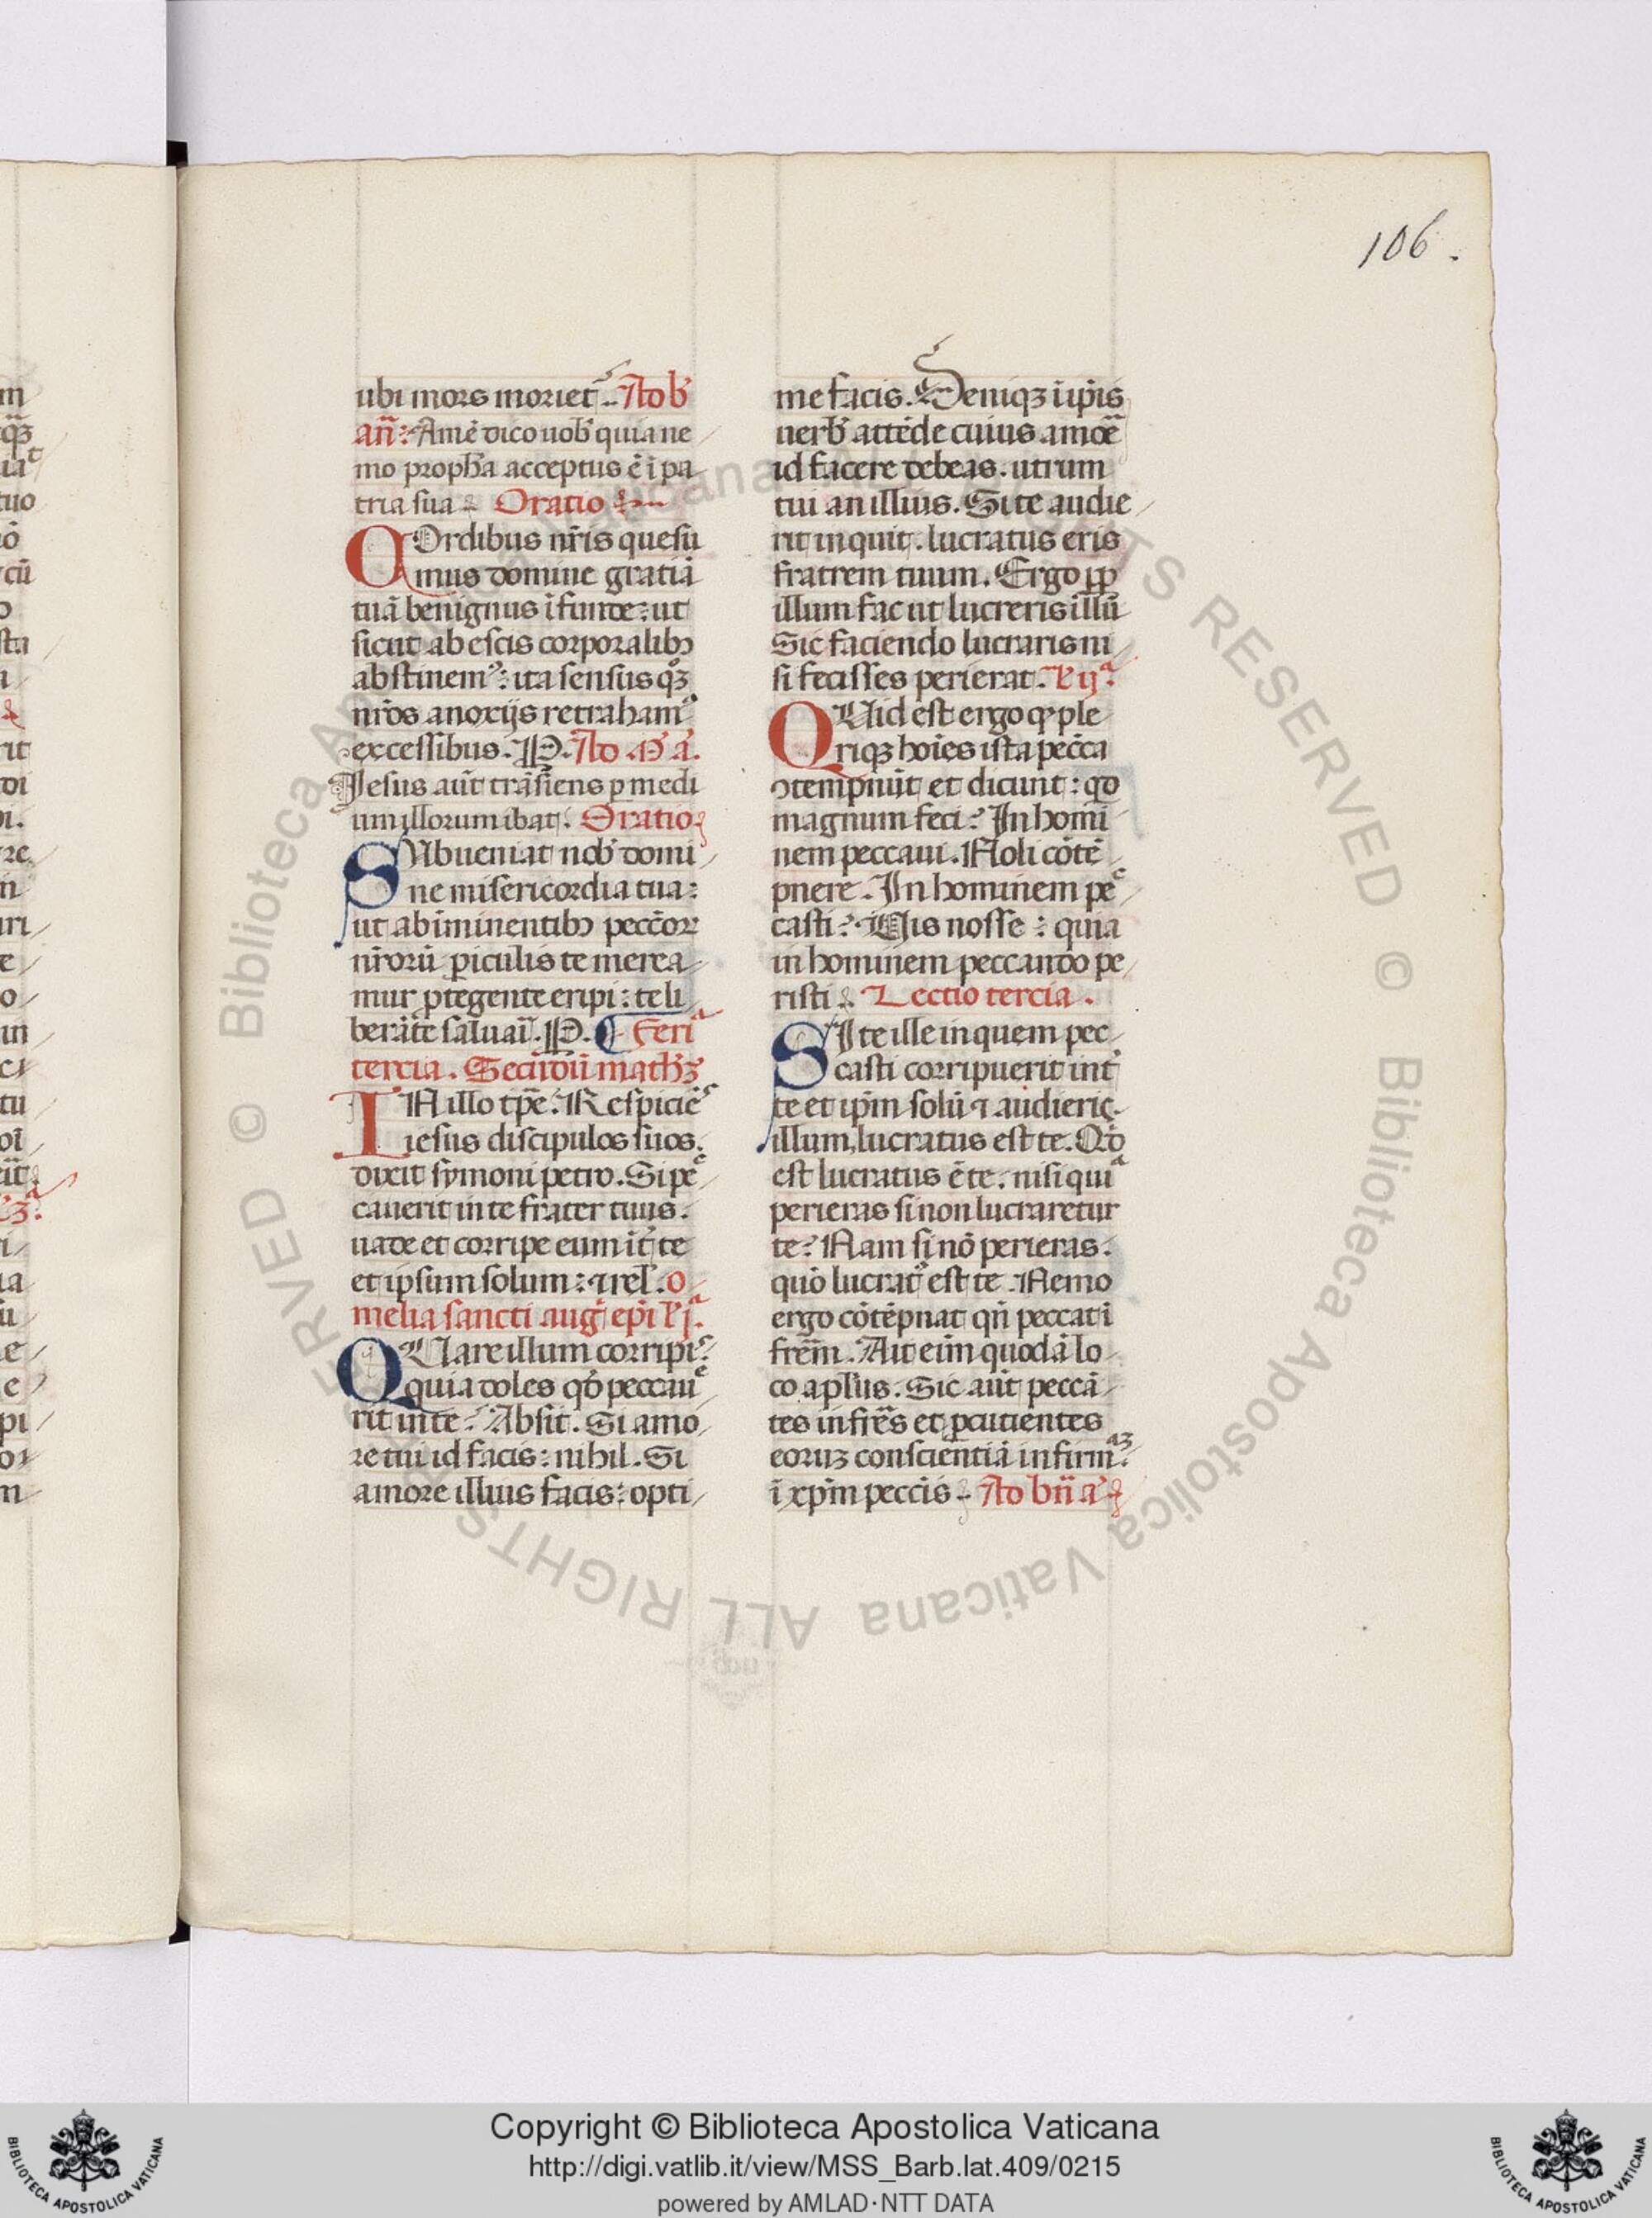 106.
ubi mors moriet᷑. Ad b̃
añ: Amē dico uob̃ quia ne
mo propħa acceptus ē ī pa
tria sua. Oratio
QOrdibus nr̄is quesu
mus domine gratiā
tuā benignus īfunde: ut
sicut ab escis corporalibꝫ
abstinemꝰ: ita sensus qꝫ
nr̄os a noxijs retrahamꝰ
excessibus. P. Ad M. a.
Jesus aūt trāsiens ꝑ medi
um illorum ibat. Oratio
SUbueniat nob̃ domi
ne misericordia tua:
ut ab īminentibꝫ pecc̄oꝝ
nr̄orū ꝑiculis te merea
mur ꝓtegente eripi: te li
berāte saluari. P. ¶ Feri
tercia. Secundū math̄ꝫ
IN illo tp̄e: Respiciēs
iesus discipulos suos.
dixit symoni petro. Si pec
cauerit in te frater tuus.
uade et corripe eum īt̄ te
et ipsum solum: ⁊ rel̃. O
melia sancti aug̃ ep̄i l̃ jᵃ.
QUare illum corripis?
quia doles qd̄ peccaue
rit in te? Absit. Si amo
re tui id facis: nihil. Si
amore illius facis: opti
me facis. Deniqꝫ ī ip̄is
uerb̃ attēde cuius amōe
id facere debeas. utrum
tui an illius. Si te audie
rit inquit. lucratus eris
fratrem tuum. Ergo ꝓp
illum fac ut lucreris illū
Sic faciendo lucraris ni
si fecisses perierat. l̃ ijᵃ.
QUid est ergo ꝙ ple
riqꝫ hoīes ista pecc̄a
ꝯtempnūt et dicunt: qd
magnum feci? In homi
nem peccaui. Noli cōtē
pnere. In hominem pec
casti? Uis nosse: quia
in hominem peccando pe
risti. Lectio tercia.
SI te ille in quem pec
casti corripuerit int̃
te et ip̄m solū ⁊ audieris
illum, lucratus est te. Qd̄
est lucratus ē te. nisi quiᵃ
perieras si non lucraretur
te? Nam si nō perieras.
quō lucratꝰ est te. Nemo
ergo cōtēpnat qn̄ peccat ī
fr̄em. Ait eīm quodā lo
co apl̄us. Sic aūt peccā
tes in fr̄es et ꝑcutientes
eoruꝫ conscientiā infirmaꝫ:
ī xp̄m pecc̄is. Ad bn̄ a.
Copyright © Biblioteca Apostolica Vaticana
http://digi.vatlib.it/view/MSS_Barb.lat.409/0215
powered by AMLAD·NTT DATA
BIBLIOTECA APOSTOLICA VATICANA
BIBLIOTECA APOSTOLICA VATICANA
© Biblioteca Apostolica Vaticana ALL RIGHTS RESERVED © Biblioteca Apostolica Vaticana ALL RIGHTS RESERVED